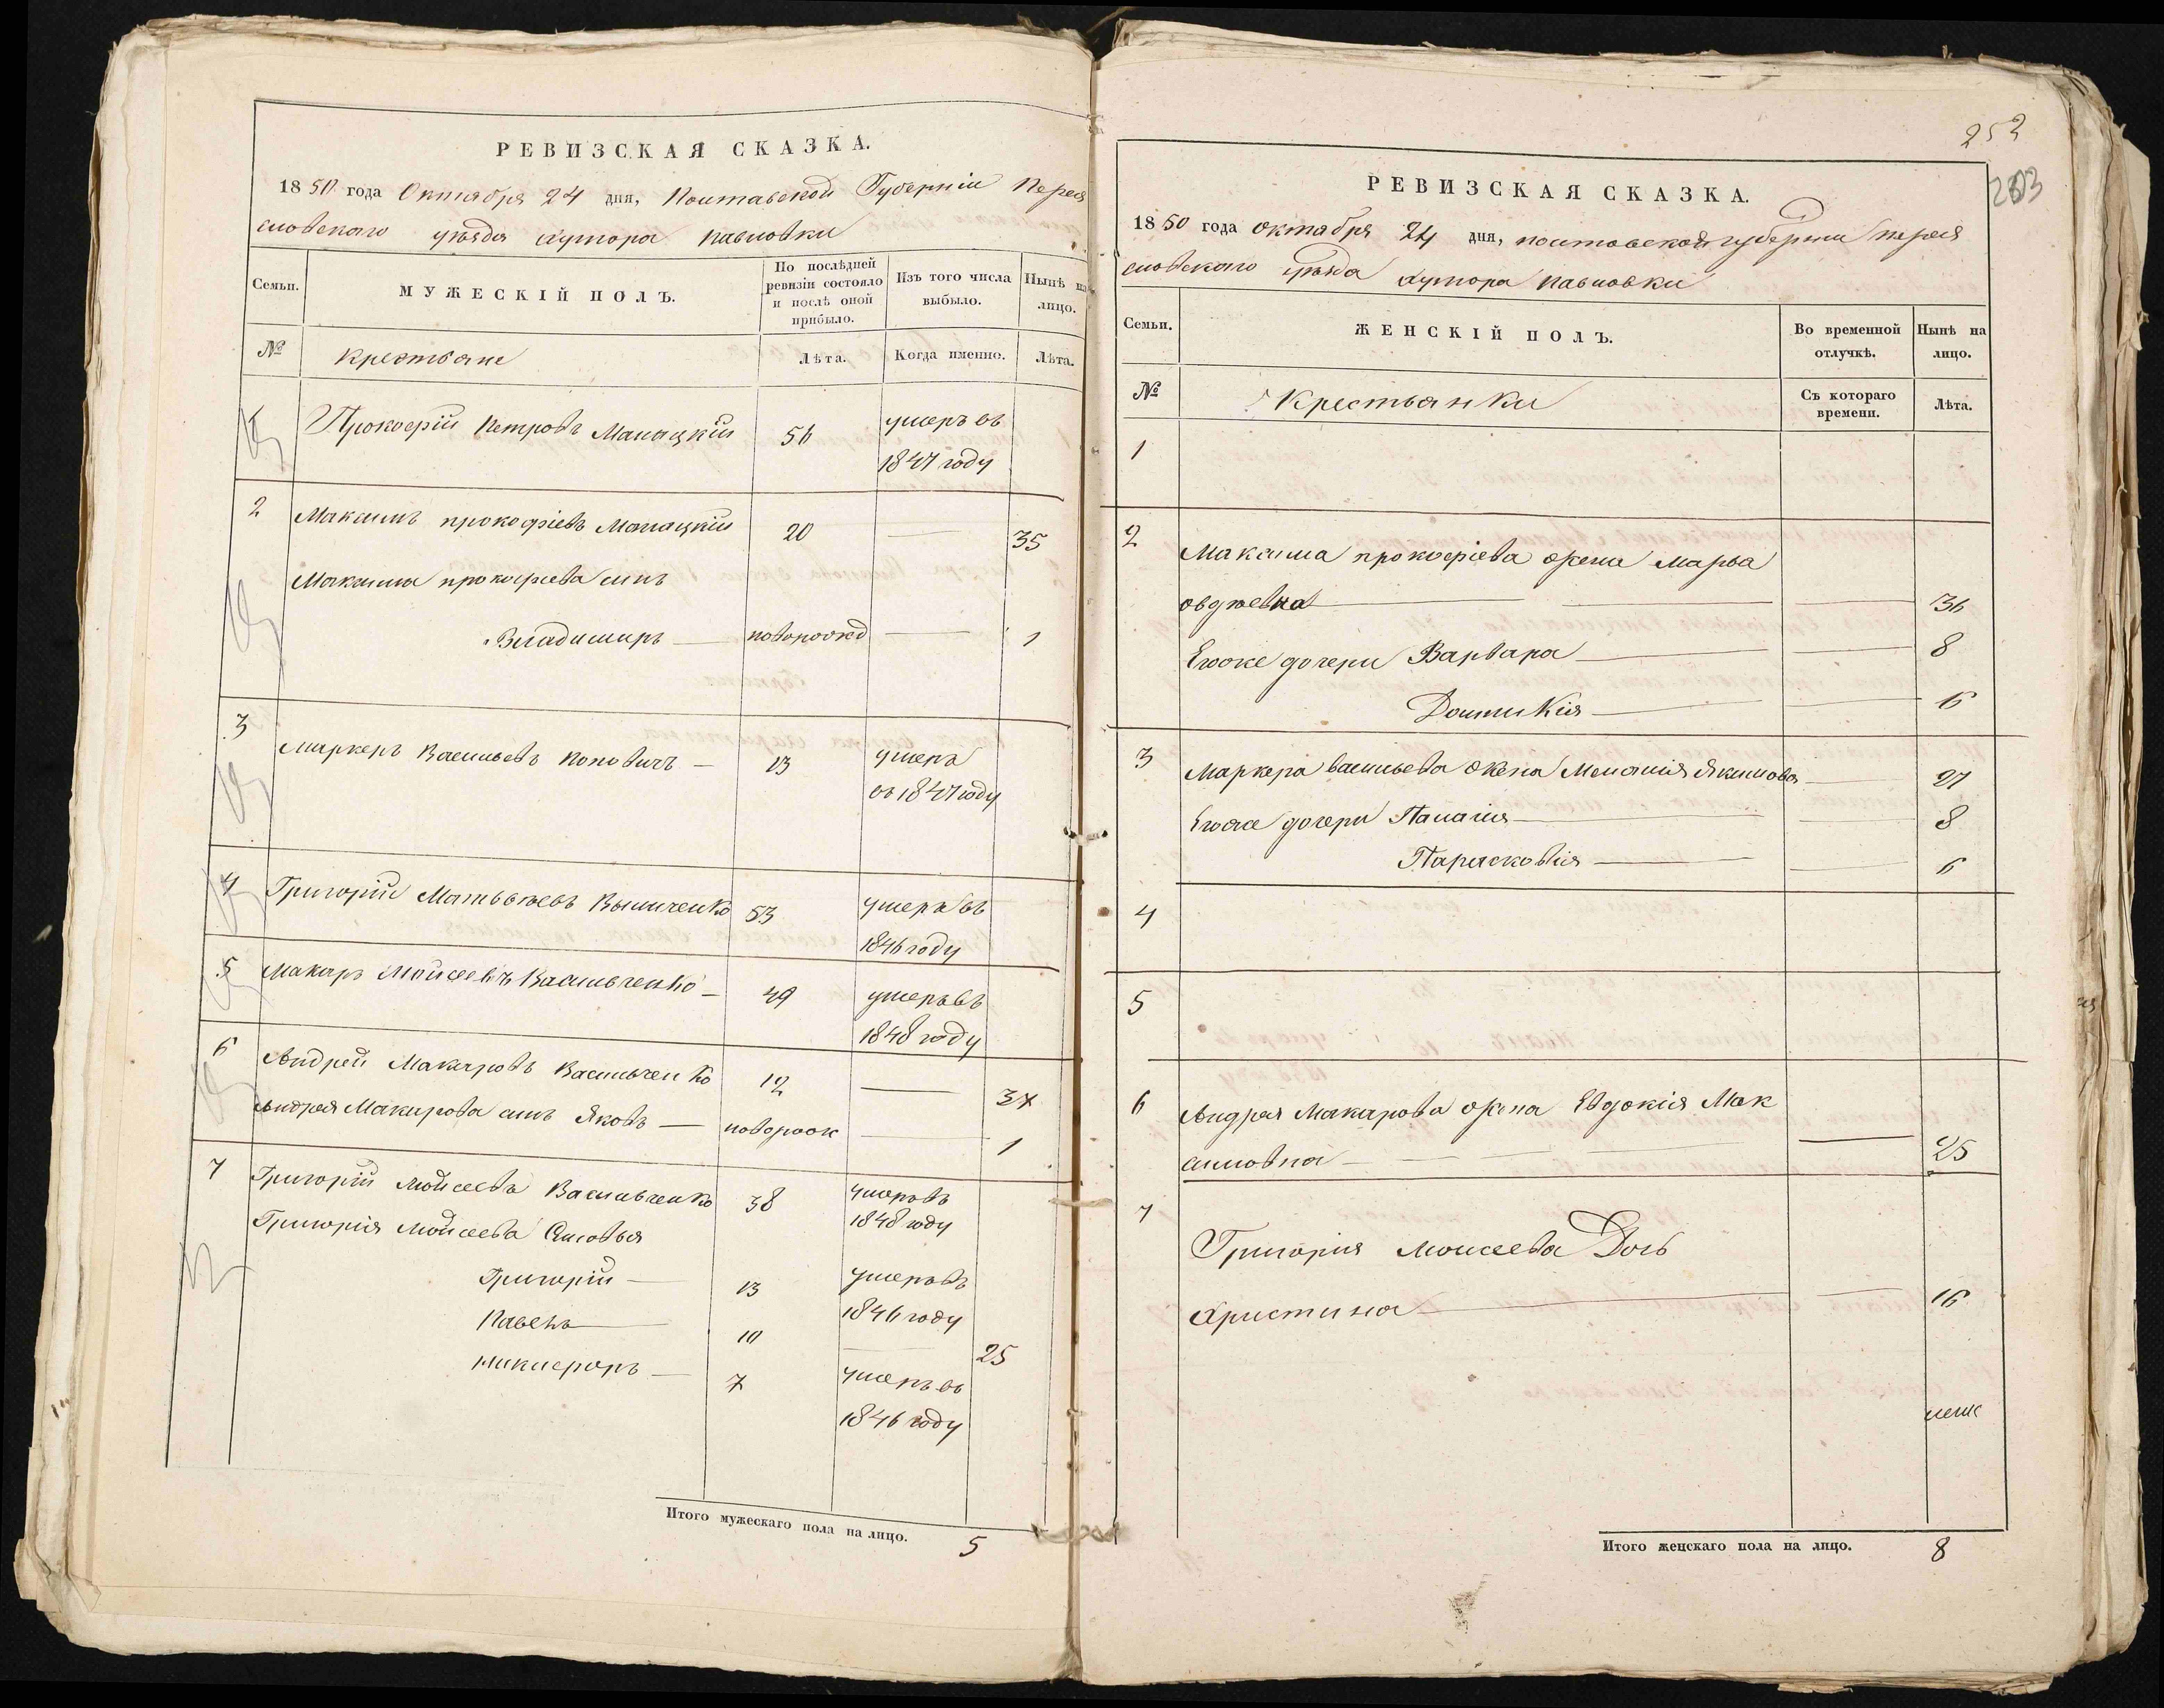 РЕВИЗСКАЯ СКАЗКА.
1850 года Октября 24 дня, Полтавской Губерніи Перея
словскаго уѣзда хутора Павловки
Семьи.
МУЖЕСКІЙ ПОЛЪ.
По послѣдней ревизіи состояло и послѣ оной прибыло.
Изъ того числа выбыло.
Нынѣ на лицо.
№
крестьяне
Лѣта.
Когда именно.
Лѣта.
Прокофій Петровъ 56 умеръ въ
1847 году
2 Максимъ прокофіевъ 20 — 35
Максима прокофіева сынъ
Владимиръ — новорожд — 1
3 Маркеръ Васильевъ Поповичъ — 13 умеръ
въ 1847 году
4 Григорій Матьвѣевъ 53 умеръ въ
1846 году
5 Макаръ Мойсеевъ Васильченко — 49 умеръ въ
1848 году
6 Андрей Макаровъ Васильченко 12 — 27
Андрея Макарова сынъ Яковъ — новорож — 1
7 Григорій Мойсеевъ Васильченко 38 умеръ въ
1848 году
Григорія Мойсеева Сыновья
Григорій — 13 умеръ въ
1846 году
Павелъ — 10 — 25
Никифоръ — 7 умеръ въ
1846 году
Итого мужескаго пола на лицо. 5
252
РЕВИЗСКАЯ СКАЗКА.
1850 года октября 24 дня, полтавской губерніи перея
словскаго уѣзда хутора Павловки
Семьи.
ЖЕНСКІЙ ПОЛЪ.
Во временной отлучкѣ.
Нынѣ на лицо.
№
Крестьянки
Съ котораго времени.
Лѣта.
1
2 Максима прокофіева жена Марья
овдѣевна — — — 36
Егоже дочери Варвара — — 8
Домникія — — 6
3 Маркера васильева жена Меланія Якимова — 27
Егоже дочери Палагія — — 8
Парасковія — — 6
4
5
6 Андрея Макарова жена Евдокія Мак
симовна — — — — 25
7
Григорія Моисеева Дочь
Христина — — 16
Итого женскаго пола на лицо. 8